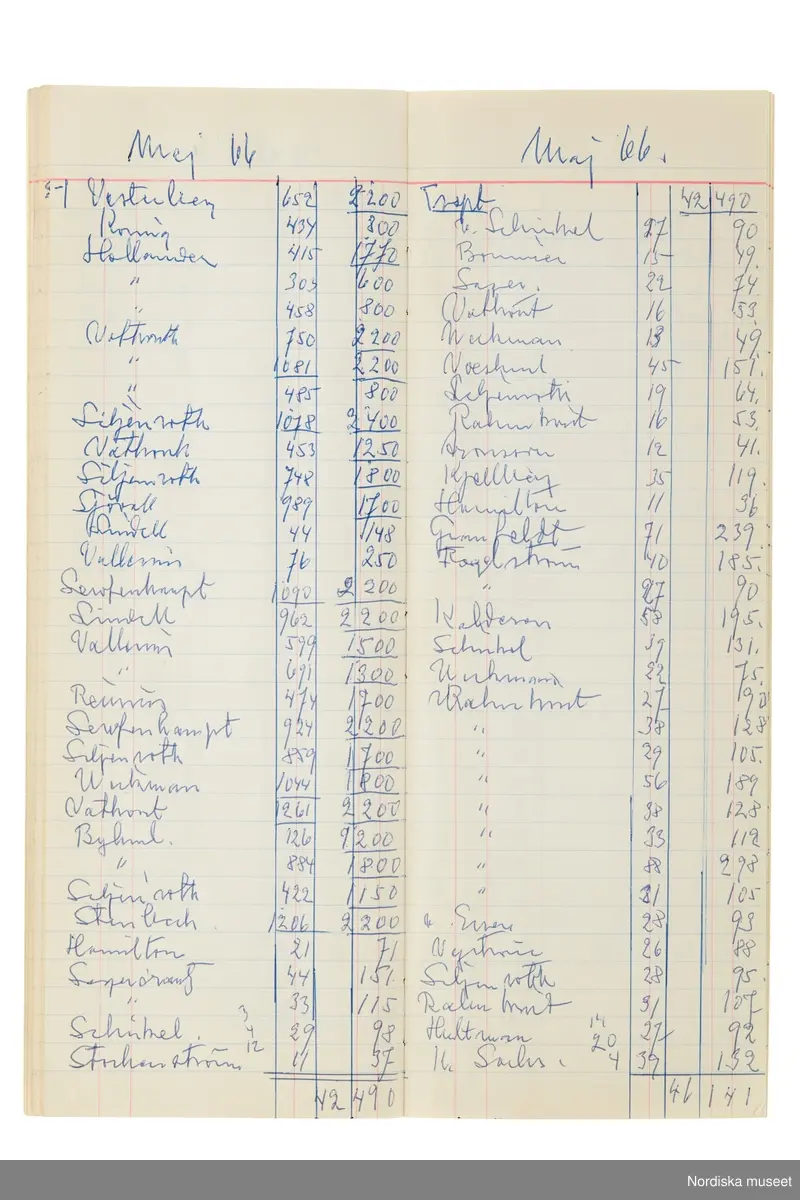 Maj 66
Vesterlien 652 2200
König 434 800
Hollander 415 1770
" 303 600
" 458 800
750 2200
" 1081 2200
" 485 800
Siljenroth 1078 2400
Vathout 453 1250
Siljenroth 748 1800
Sjövall 989 1700
Lindell 44 148
Vallerius 76 250
1090 2200
Lindell 962 2200
Vallerius 599 1500
" 691 1300
474 1700
924 2200
Siljenroth 859 1700
Wickman 1044 1800
Vathout 1261 2200
126 2200
" 884 1800
Siljenroth 422 1150
Stenbeck 1206 2200
Hamilton 21 71
44 151
" 33 115
3
Schinkel. 4 29 98
Stockenström 12 11 37
42 490
Maj 66.
Trspt 42 490
v. Schinkel 27 90
Brunnier 15 49.
Sager. 22 74
Vathout 16 53.
Wickman 13 49
45 151.
Siljenroth 19 64.
16 53.
Aronsson 12 41.
Kjellberg 35 119.
Hamilton 11 36
71 239.
Fogelström 40 185.
" 27 90
58 195.
Schinkel 39 131.
Wickman 22 75.
27 90
" 38 128
" 29 105.
" 56 189
" 38 128
" 33 112
" 88 298
" 31 105
v. Essen 28 93
Nyström 26 88
Siljenroth 28 95.
31 107
14
Hultman 20 27 92
v. Sachs. 4 39 132
46 141